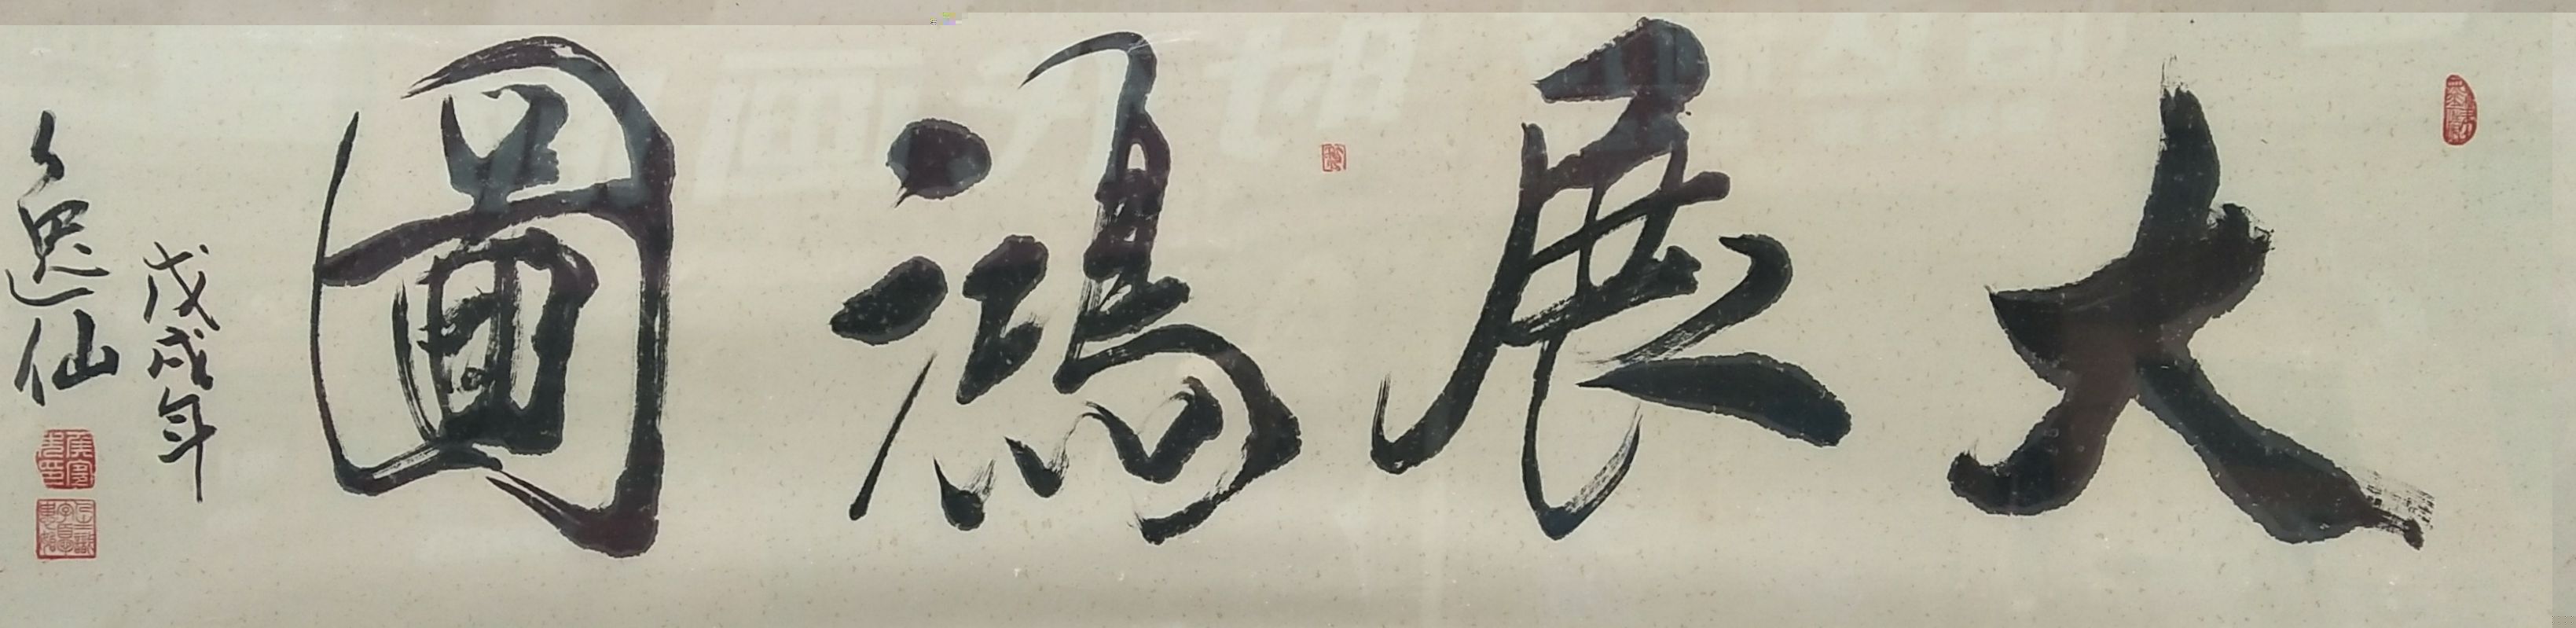 大展鴻圖
戊戌年
逸仙